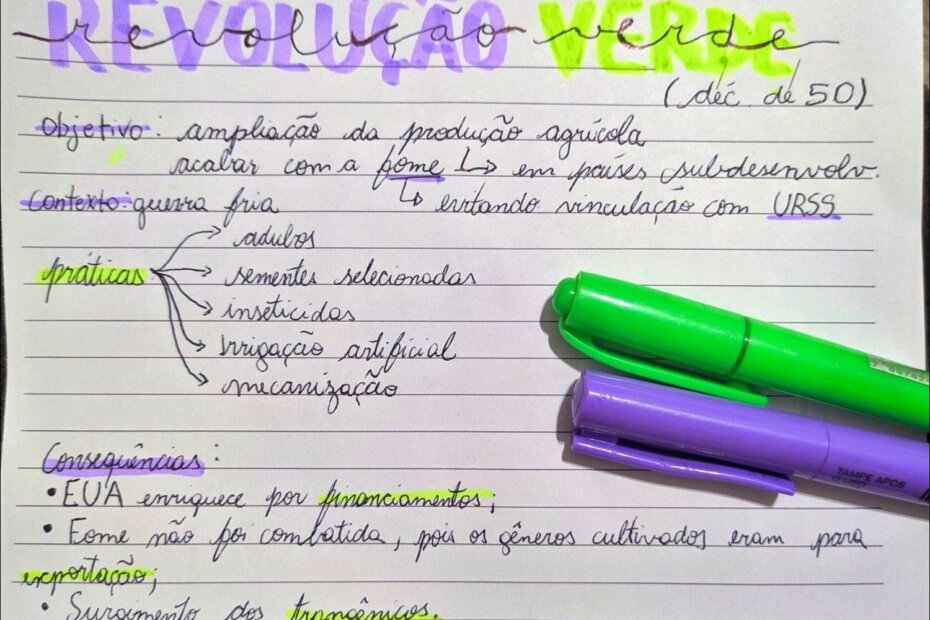 REVOLUÇÃO VERDE
revolução verde
(déc. de 50)
Objetivo: ampliação da produção agrícola
acabar com a fome em países subdesenvolv.
Contexto: guerra fria evitando vinculação com URSS
adubos
práticas sementes selecionadas
inseticidas
irrigação artificial
mecanização
Consequências:
• EUA enriquece por financiamentos;
• Fome não foi combatida, pois os gêneros cultivados eram para
exportação;
• Surgimento dos trangênicos.
TAMPE APÓS